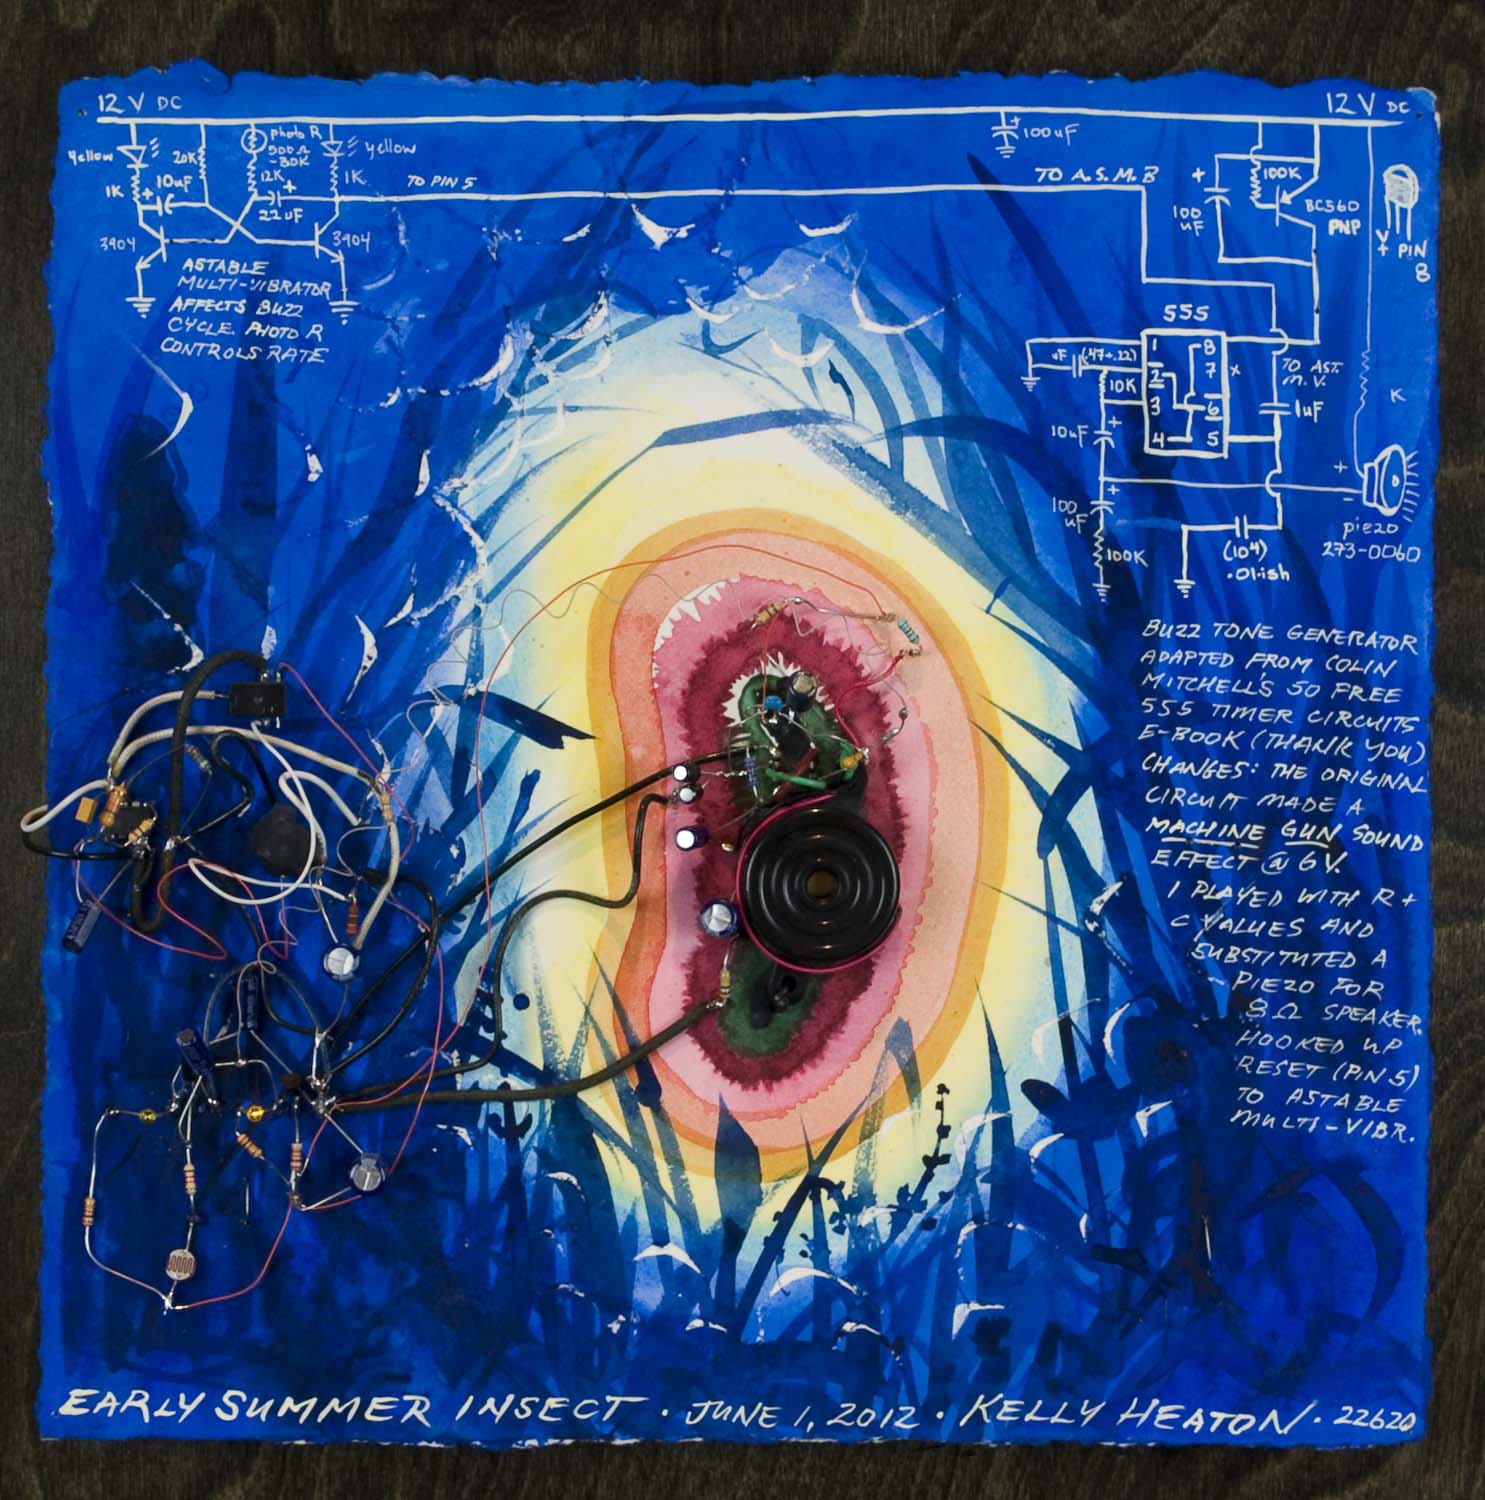 12 V DC
12 V DC
yellow
20K
photo R
500Ω
-30K
yellow
1K
10uF
+
12K
+
22uF
1K
TO PIN 5
3904
3904
ASTABLE
MULTI-VIBRATOR
AFFECTS BUZZ
CYCLE. PHOTO R
CONTROLS RATE
+
100uF
TO A.S.M.B
+
100
uF
100K
BC560
PNP
V
+
PIN
8
555
uF
(.47+.22)
10K
+
10uF
1
2
3
4
8
7
6
5
x
TO AST.
M.V.
1uF
K
+
-
piezo
273-0060
+
100
uF
100K
(104)
.01ish
BUZZ TONE GENERATOR
ADAPTED FROM COLIN
MITCHELL'S 50 FREE
555 TIMER CIRCUITS
E-BOOK (THANK YOU)
CHANGES: THE ORIGINAL
CIRCUIT MADE A
MACHINE GUN SOUND
EFFECT @ 6V.
I PLAYED WITH R +
C VALUES AND
SUBSTITUTED A
PIEZO FOR
8Ω SPEAKER.
HOOKED UP
RESET (PIN 5)
TO ASTABLE
MULTI-VIBR.
EARLY SUMMER INSECT · JUNE 1, 2012 · KELLY HEATON · 22620